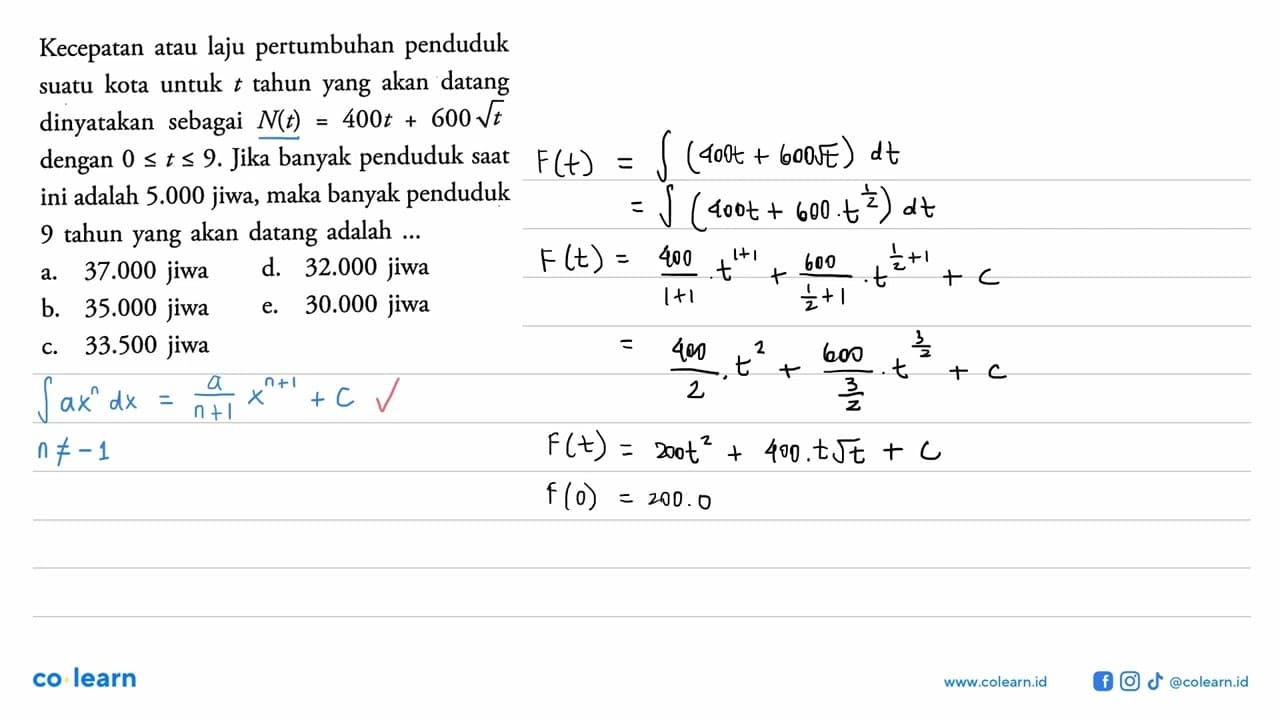 Kecepatan atau laju pertumbuhan penduduk
suatu kota untuk t tahun yang akan datang
dinyatakan sebagai N(t) = 400t + 600√t
dengan 0 ≤ t ≤ 9. Jika banyak penduduk saat
ini adalah 5.000 jiwa, maka banyak penduduk
9 tahun yang akan datang adalah ...
a. 37.000 jiwa d. 32.000 jiwa
b. 35.000 jiwa e. 30.000 jiwa
c. 33.500 jiwa
∫ ax^n dx = a/(n+1) x^(n+1) + C ✓
n ≠ -1
F(t) = ∫ (400t + 600√t) dt
= ∫ (400t + 600.t^(1/2)) dt
F(t) = 400/(1+1) . t^(1+1) + 600/(1/2+1) . t^(1/2+1) + C
= 400/2 . t^2 + 600/(3/2) . t^(3/2) + C
F(t) = 200t^2 + 400.t√t + C
f(0) = 200.0
co learn
www.colearn.id
@colearn.id